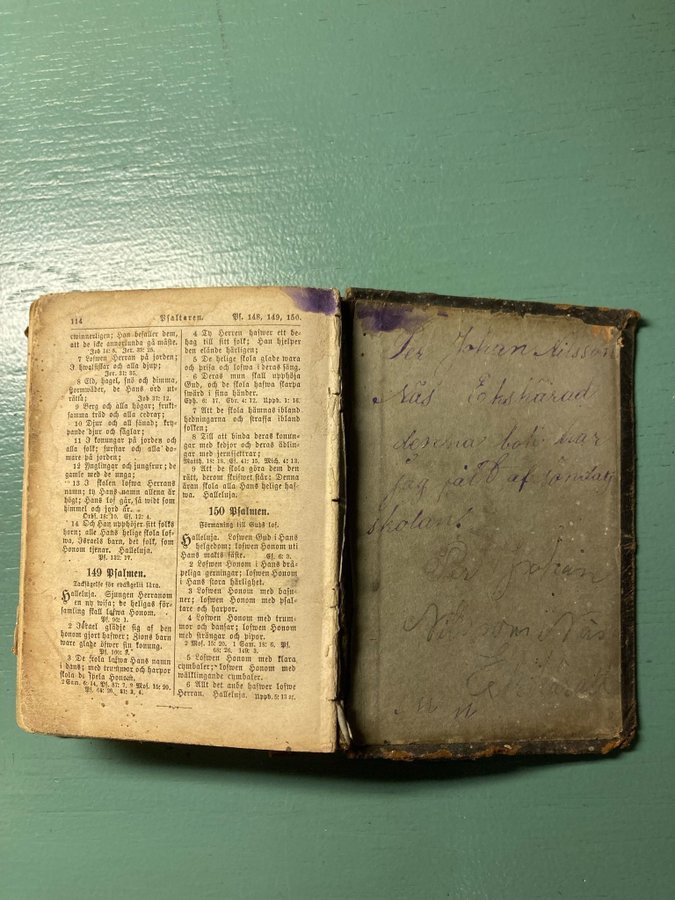 114
Psaltaren.
Ps. 148, 149, 150.
ewinnerligen; Han befaller dem,
att de icke annorlunda gå måste.
7 Lofwen Herren på jorden;
I hwalfiskar och alla djup;
8 Eld, hagel, snö och dimma,
stormwäder, de Hans ord ut-
rätta;
9 Berg och alla högar; frukt-
samma träd och alla cedrar;
10 Djur och all fänad; kry-
pande djur och foglar;
11 I konungar på jorden och
alla folk; furstar och alla do-
mare på jorden;
12 Ynglingar och jungfrur; de
gamle med de unga;
13 I skolen lofwa Herrans
namn; ty Hans namn allena är
högt; Hans lof går, så widt som
himmel och jord är.
14 Och Han upphöjer sitt folks
horn; alle Hans helige skola lof-
wa, Israels barn, det folk, som
Honom tjenar. Halleluja.
149 Psalmen.
Halleluja. Sjungen Herranom
en ny wisa; de heligas för-
samling skall lofwa Honom.
2 Israel glädje sig af den
honom gjort hafwer; Zions barn
ware glade öfwer sin konung.
3 De skola lofwa Hans namn
i dans; med trummor och harpor
skola de spela Honom.
4 Ty Herren hafwer ett be-
hag till sitt folk; Han hjelper
den elände härligen;
5 De helige skola glade wara
och prisa och lofwa i deras säng.
6 Deras mun skall upphöja
Gud, och de skola hafwa skarpa
swärd i sina händer.
7 Att de skola hämnas ibland
hedningarna och straffa ibland
folken;
8 Till att binda deras konun-
gar med kedjor och deras ädlin-
gar med jernfjettrar;
9 Att de skola göra dem den
rätt, derom skrifwet står: Denna
äran skola alla Hans helige haf-
wa. Halleluja.
150 Psalmen.
Förmaning till Guds lof.
Halleluja. Lofwen Gud i Hans
helgedom; lofwen Honom uti
Hans makts fäste.
2 Lofwen Honom i Hans drä-
peliga gerningar; lofwen Honom
i Hans stora härlighet.
3 Lofwen Honom med basu-
ner; lofwen Honom med psal-
tare och harpor.
4 Lofwen Honom med trum-
mor och dansar; lofwen Honom
med strängar och pipor.
5 Lofwen Honom med klara
cymbaler; lofwen Honom med
wälklingande cymbaler.
6 Allt det ande hafwer lofwe
Herran. Halleluja.
Per Johan Nilsson
Näs Ekshärad
denna bok har
jag fått af söndag
skolan.
Per Johan
Näs